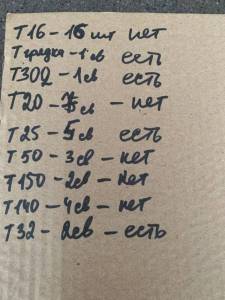 Т16 - 16 шт нет
Т грядка - 1 св есть
Т30Q - 1 св есть
Т20 - св - нет
Т25 - 5 св есть
Т50 - 3 св - нет
Т150 - 2 св - нет
Т140 - 4 св - нет
Т32 - 2 св - есть